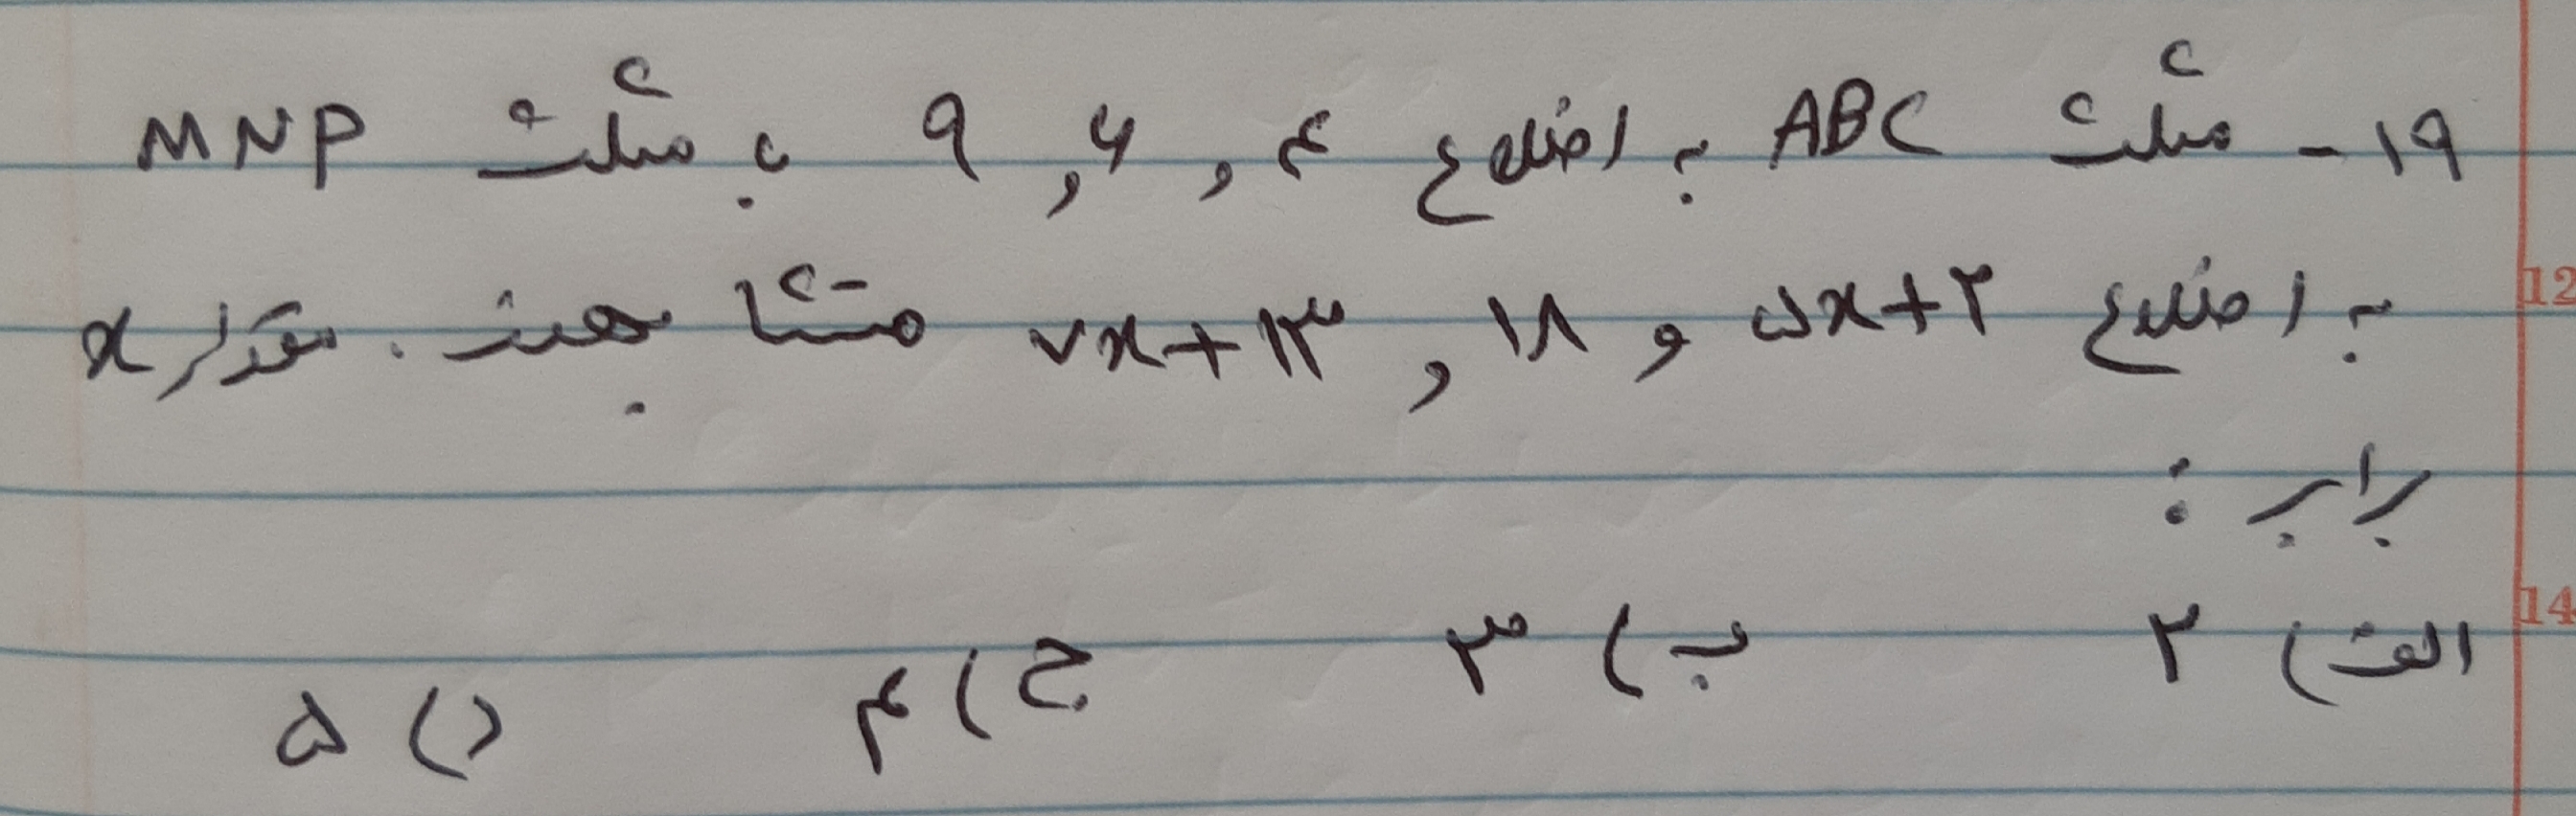 ۱۹- مثلث ABC به اضلاع ۴ و ۶ و ۹ با مثلث MNP
به اضلاع ۵x+۲ و ۱۸ و ۷x+۱۳ متشابهند. مقدار x
برابر :
الف) ۲ ب) ۳ ج) ۴ د) ۵
12
14